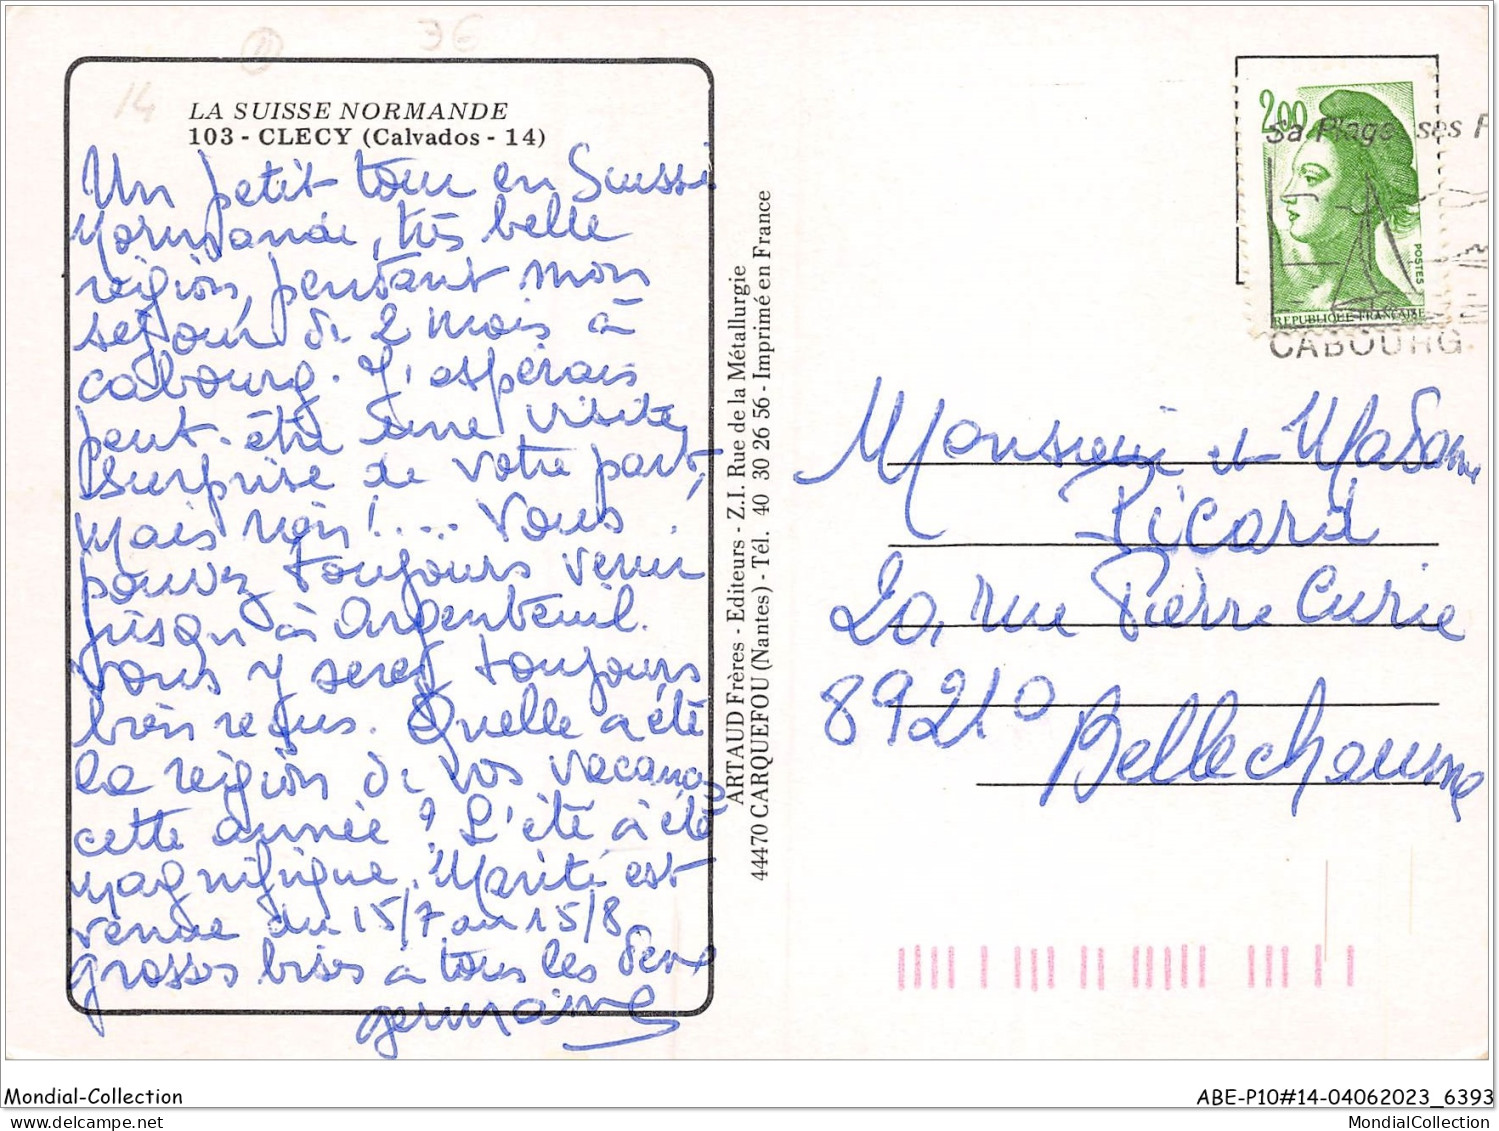 3€
14
LA SUISSE NORMANDE
103 - CLECY (Calvados - 14)
Un petit tour en Suisse
Normande, très belle
région, pendant mon
séjour de 2 mois à
Cabourg. J'espérais
peut-être une visite
surprise de votre part,
mais non !.... Vous
pouvez toujours venir
jusqu'à Argenteuil.
Vous y serez toujours
bien reçus. Quelle a été
la région de vos vacances
cette année ? L'été a été
magnifique. Marité est
venue du 15/7 au 15/8
grosses bises à tous les deux
germaine
ARTAUD Frères - Editeurs - Z.I. Rue de la Métallurgie
44470 CARQUEFOU (Nantes) - Tél. 40 30 26 56 - Imprimé en France
2,00
POSTES
REPUBLIQUE FRANÇAISE
Sa Plage ses F
CABOURG
Monsieur et Madame
Picard
20, rue Pierre Curie
89210
Bellechaume
Mondial-Collection
ABE-P10#14-04062023_6393
MondialCollection